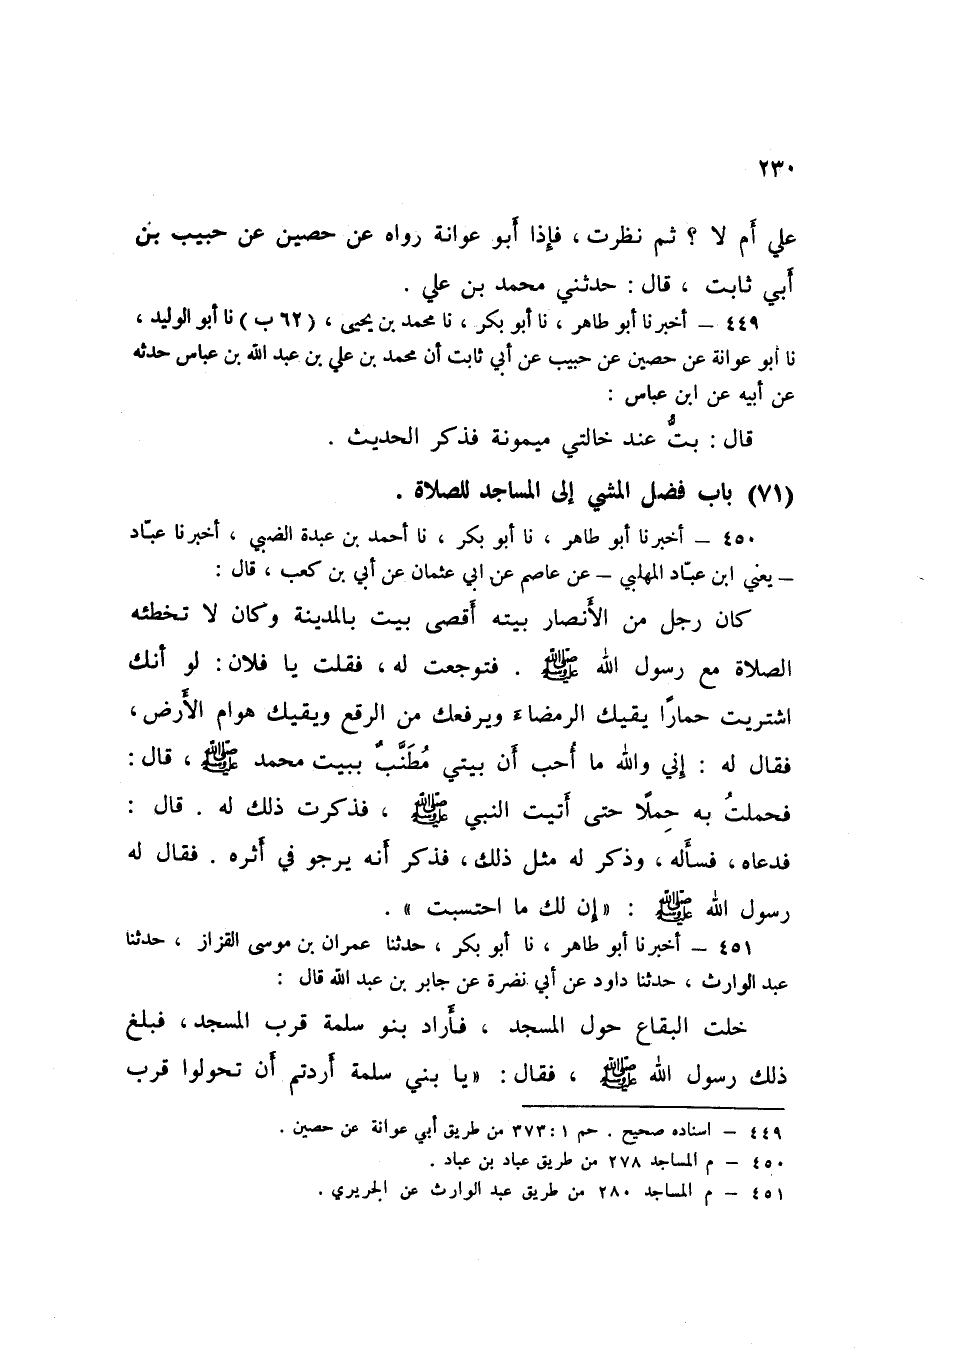 ٢٣٠
علي أَم لا ؟ ثم نظرت ، فإذا أَبو عوانة رواه عن حصين عن حبيب بن
أَبي ثابت ، قال : حدثني محمد بن علي .
٤٤٩ – أخبرنا أبو طاهر ، نا أبو بكر ، نا محمد بن يحيى ، ( ٦٢ ب ) نا أبو الوليد ،
نا أبو عوانة عن حصين عن حبيب عن أبي ثابت أن محمد بن علي بن عبد الله بن عباس حدثه
عن أبيه عن ابن عباس :
قال : بتُّ عند خالتي ميمونة فذكر الحديث .
(٧١) باب فضل المشي إلى المساجد للصلاة .
٤٥٠ – أخبرنا أبو طاهر ، نا أبو بكر ، نا أحمد بن عبدة الضبي ، أخبرنا عبّاد
– يعني ابن عبّاد المهلبي – عن عاصم عن ابي عثمان عن أبي بن كعب ، قال :
كان رجل من الأَنصار بيته أَقصى بيت بالمدينة وكان لا تخطئه
الصلاة مع رسول الله ﷺ . فتوجعت له ، فقلت يا فلان : لو أَنك
اشتريت حمارًا يقيك الرمضاء ويرفعك من الرقع ويقيك هوام الأَرض ،
فقال له : إني والله ما أُحب أَن بيتي مُطَنَّبٌ ببيت محمد ﷺ ، قال :
فحملتُ به حِملًا حتى أَتيت النبي ﷺ ، فذكرت ذلك له . قال :
فدعاه ، فسأَله ، وذكر له مثل ذلك ، فذكر أَنه يرجو في أَثره . فقال له
رسول الله ﷺ : « إن لك ما احتسبت » .
٤٥١ – أخبرنا أبو طاهر ، نا أبو بكر ، حدثنا عمران بن موسى القزاز ، حدثنا
عبد الوارث ، حدثنا داود عن أبي نضرة عن جابر بن عبد الله قال :
خلت البقاع حول المسجد ، فأَراد بنو سلمة قرب المسجد ، فبلغ
ذلك رسول الله ﷺ ، فقال : « يا بني سلمة أَردتم أَن تحولوا قرب
٤٤٩ – اسناده صحيح . حم ١ : ٣٧٣ من طريق أبي عوانة عن حصين .
٤٥٠ – م المساجد ٢٧٨ من طريق عباد بن عباد .
٤٥١ – م المساجد ٢٨٠ من طريق عبد الوارث عن الجريري .